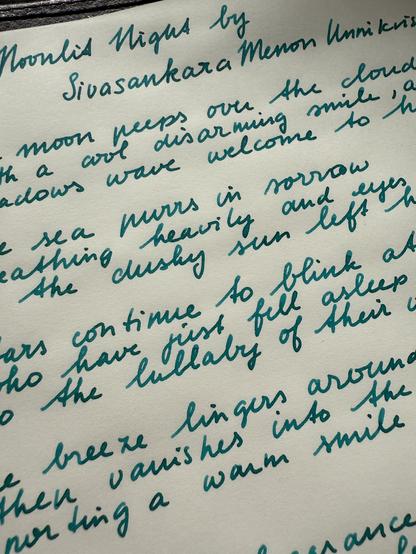 Moonlit Night by
Sivasankara Menon Unnikris
moon peeps over the cloud
th a cool disarming smile, a
adows wave welcome to h
e sea purrs in sorrow
eathing heavily and eyes
the dusky sun left h
tars continue to blink at
who have just fell asleep
to the lullaby of their
e breeze lingers around
then vanishes into the
porting a warm smile